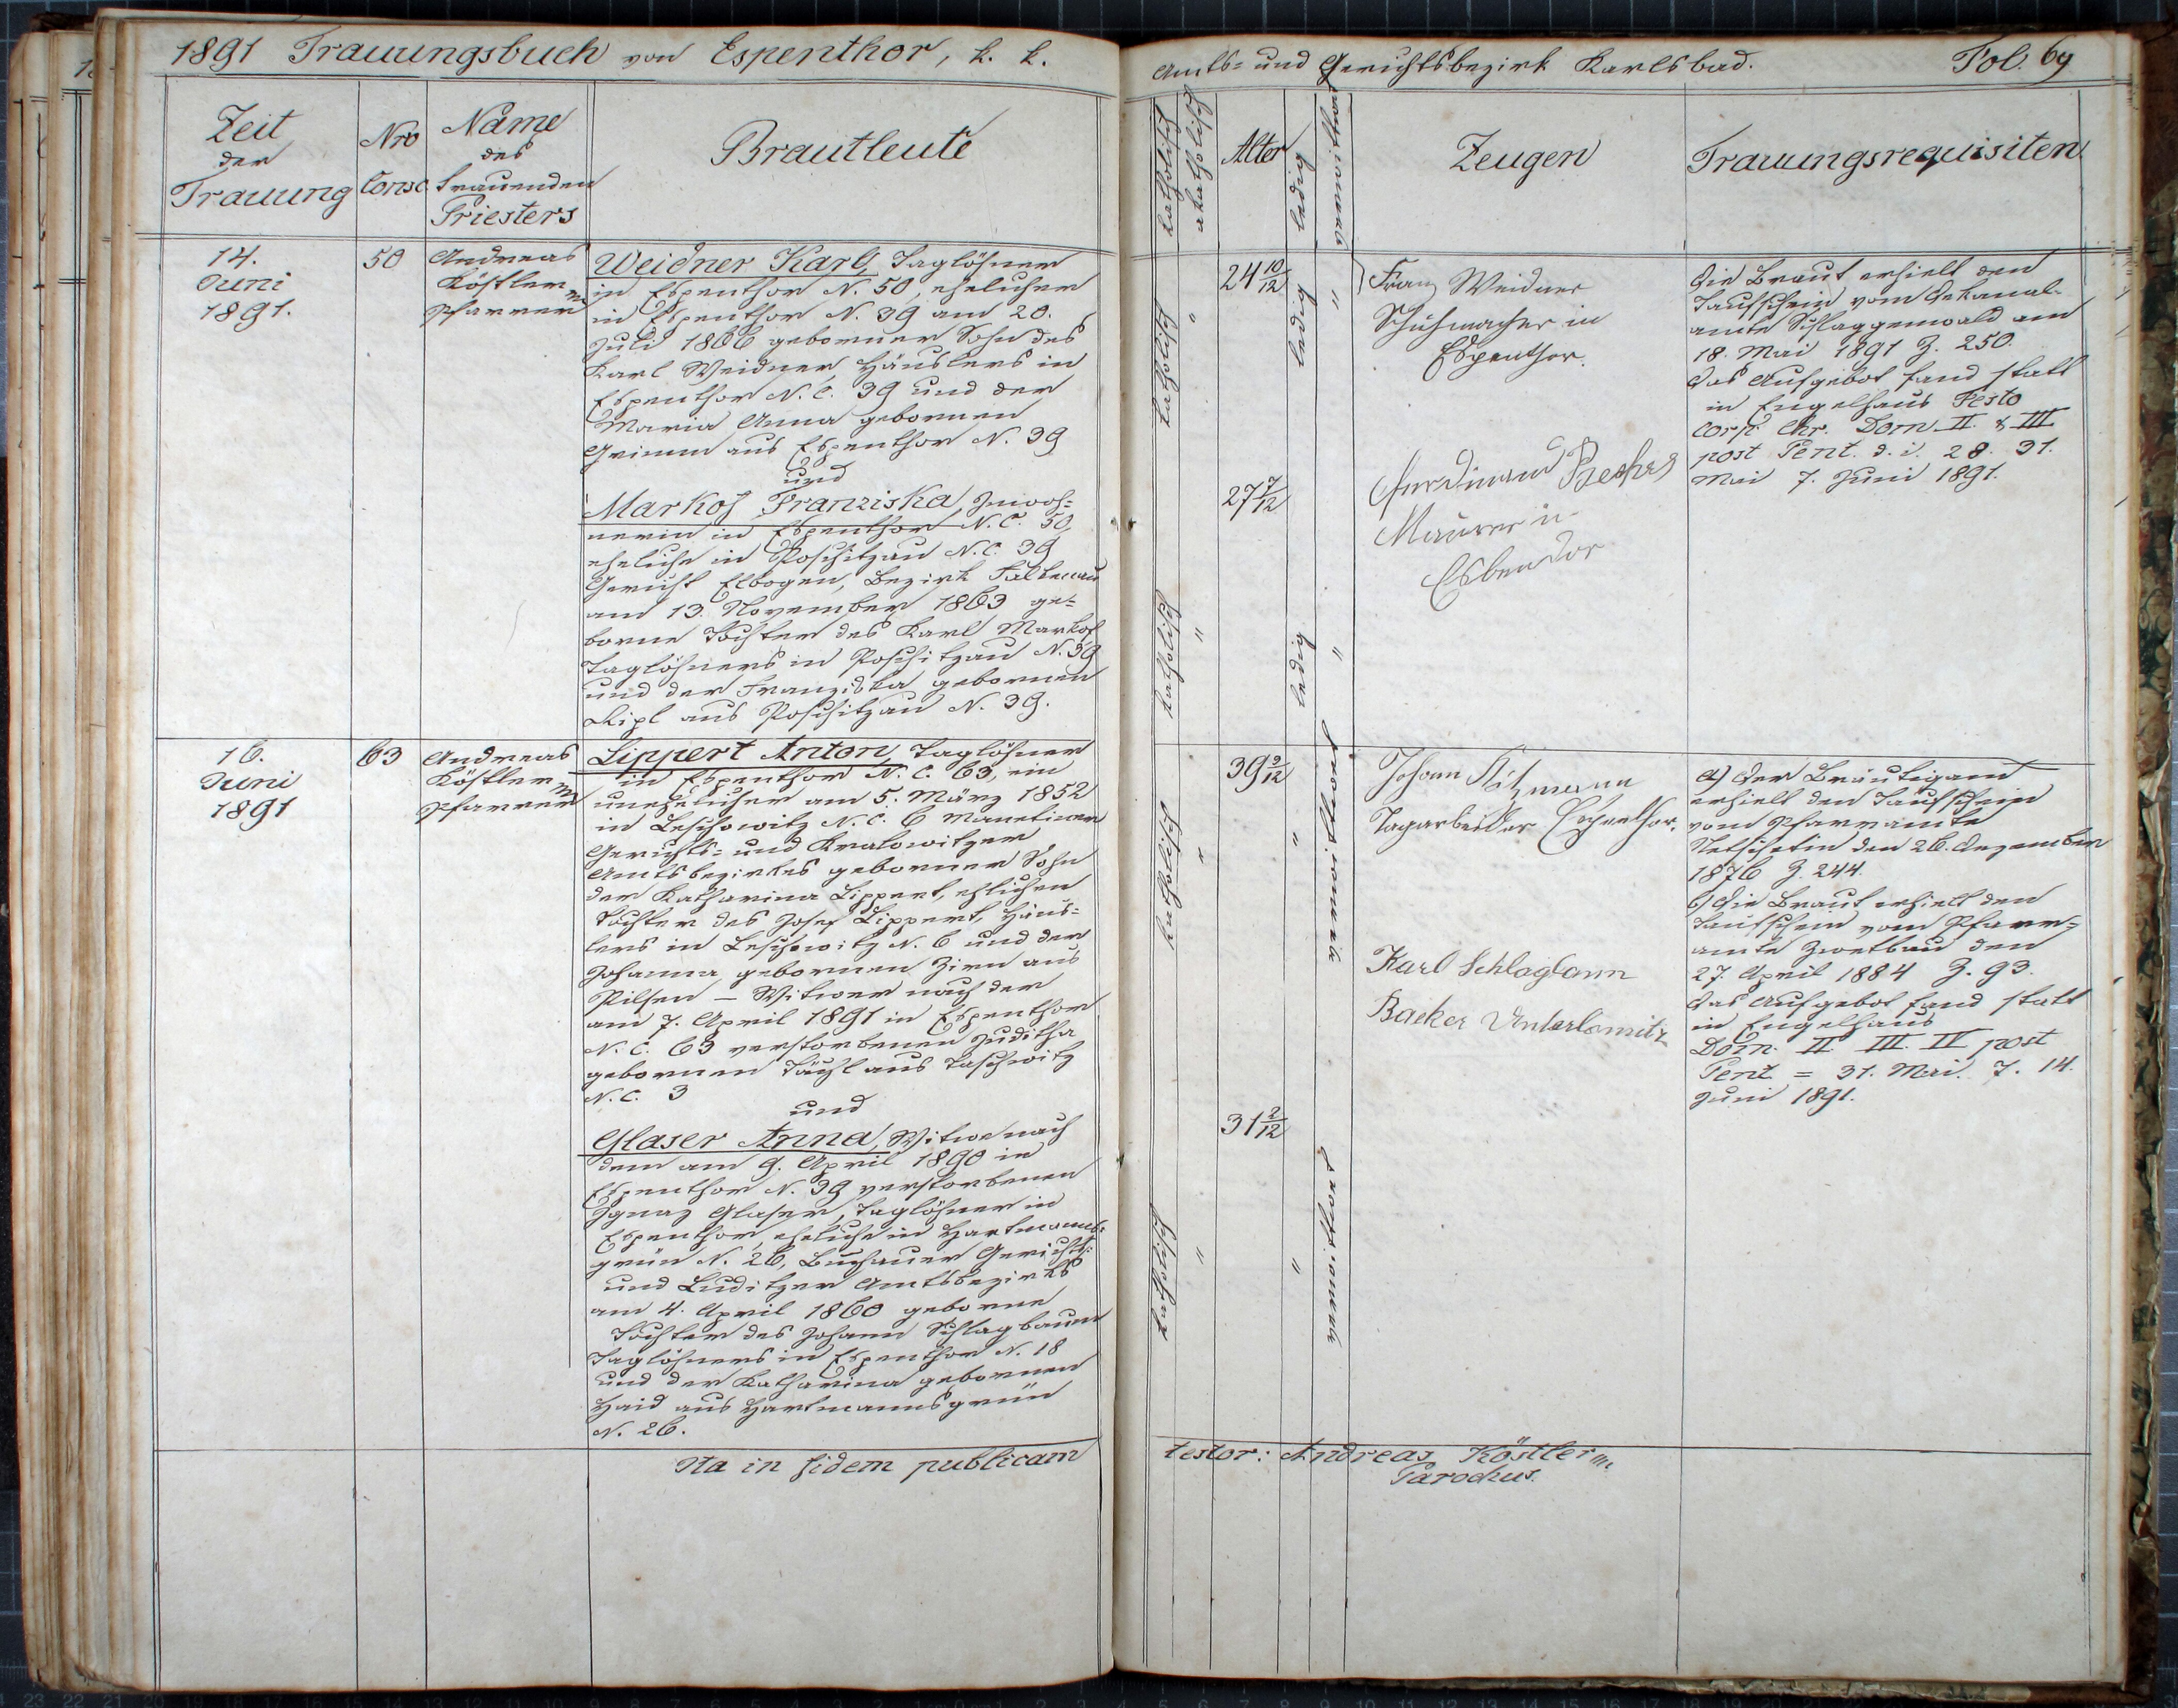 1891 Trauungsbuch von Espenthor, k. k.
Amts= und Gerichtsbezirk Karlsbad.
Fol. 69
Zeit
der
Trauung
Nro
Consc.
Name
des
trauenden
Priesters
Brautleute
katholisch
akatholisch
Alter
ledig
verwittwet
Zeugen
Trauungsrequisiten
14.
Juni
1891.
50
Andreas
Köstler
Pfarrer
Weidner Karl, Taglöhner
in Espenthor N. 50, ehelicher
in Espenthor N. 39 am 20.
Juli 1866 geborner Sohn des
Karl Weidner, Häuslers in
Espenthor N. C. 39 und der
Maria Anna gebornen
Grimm aus Espenthor N. 39
und
Markof Franziska, Inwoh=
nerin in Espenthor N. C. 50,
eheliche in Poschitzau N. C. 39
Gericht Elbogen, Bezirk Falkenau
am 13. November 1863 ge=
borne Tochter des Karl Markof
Taglöhners in Poschitzau N. 39
und der Franziska gebornen
Lipl aus Poschitzau N. 39.
katholisch
"
24 10/12
ledig
"
katholisch
"
27 7/12
ledig
"
Franz Weidner
Schuhmacher in
Espenthor.
Ferdinand
Maurer in
Esbendor
Die Braut erhielt den
Taufschein vom Dekanal-
amte Schlaggenwald am
18. Mai 1891 Z. 250.
Das Aufgebot fand statt
in Engelhaus Festo
Corp. Chr. Dom II. & III
post Pent. d. i. 28. 31.
Mai 7. Juni 1891.
16.
Juni
1891
63
Andreas
Köstler
Pfarrer
Lippert Anton, Taglöhner
in Espenthor N. C. 63, ein
unehelicher am 5. März 1852
in Leschowitz N. C. 6 Manetiner
Gerichts= und Kralowitzer
Amtsbezirkes geborner Sohn
der Katharina Lippert, ehlichen
Tochter des Josef Lippert, Häus=
lers in Leschowitz N. 6 und der
Johanna gebornen Zirn aus
Pilsen – Witwer nach der
am 7. April 1891 in Espenthor
N. C. 63 verstorbenen Juditha
gebornen Täuschl aus Taschwitz
N. C. 3
und
Glaser Anna, Witwe nach
dem am 9. April 1890 in
Espenthor N. 39 verstorbenen
Ignaz Glaser, Taglöhner in
Espenthor, eheliche in Hartmanns=
grün N. 26, Buchauer Gerichts=
und Luditzer Amtsbezirks
am 4. April 1860 geborne
Tochter des Johann Schlagbaum
Taglöhners in Espenthor N. 18
und der Katharina gebornen
Haid aus Hartmannsgrün
N. 26.
katholisch
"
39 3/12
"
verwittwet
katholisch
"
31 2/12
"
verwittwet
Johann
Tagarbeider Espenthor.
Karl Schlagbaum
Backer Unterlomitz
a) Der Bräutigam
erhielt den Taufschein
vom Pfarramte
Netschetin den 26. Dezember
1876 Z. 244.
b) Die Braut erhielt den
Taufschein vom Pfarr=
amte Zwetbau den
27. April 1884 Z. 93.
Das Aufgebot fand statt
in Engelhaus
Dom. II III. IV post
Pent. = 31. Mai. 7. 14.
Juni 1891.
Ita in fidem publicam
testor: Andreas Köstler
Parochus.